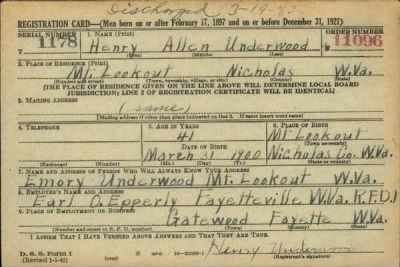 Discharged 3-19-43
REGISTRATION CARD—(Men born on or after February 17, 1897 and on or before December 31, 1921)
SERIAL NUMBER 1. NAME (Print) ORDER NUMBER
1178 Henry Allen Underwood 11096
(First) (Middle) (Last)
2. PLACE OF RESIDENCE (Print)
Mt. Lookout Nicholas W.Va.
(Number and street) (Town, township, village, or city) (County) (State)
[THE PLACE OF RESIDENCE GIVEN ON THE LINE ABOVE WILL DETERMINE LOCAL BOARD
JURISDICTION; LINE 2 OF REGISTRATION CERTIFICATE WILL BE IDENTICAL]
3. MAILING ADDRESS
(same)
[Mailing address if other than place indicated on line 2. If same insert word same]
4. TELEPHONE 5. AGE IN YEARS 6. PLACE OF BIRTH
41 Mt Lookout
DATE OF BIRTH (Town or county)
March 31 1900 Nicholas Co. W.Va.
(Exchange) (Number) (Mo.) (Day) (Yr.) (State or country)
7. NAME AND ADDRESS OF PERSON WHO WILL ALWAYS KNOW YOUR ADDRESS
Emory Underwood Mt. Lookout W.Va.
8. EMPLOYER'S NAME AND ADDRESS
Earl O. Epperly Fayetteville W.Va. R.F.D.1
9. PLACE OF EMPLOYMENT OR BUSINESS
Gatewood Fayette W.Va.
(Number and street or R. F. D. number) (Town) (County) (State)
I AFFIRM THAT I HAVE VERIFIED ABOVE ANSWERS AND THAT THEY ARE TRUE.
D. S. S. Form 1
(Revised 1-1-42) GPO Henry Underwood